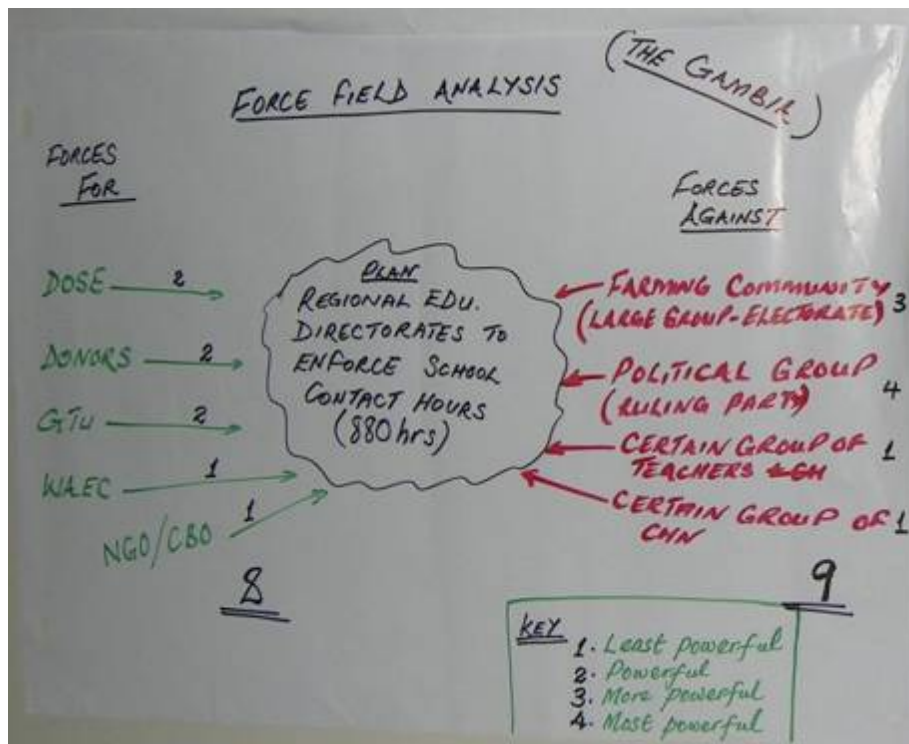 (THE GAMBIA)
FORCE FIELD ANALYSIS
FORCES
FOR
DOSE 2
DONORS 2
GTU 2
WAEC 1
NGO/CBO 1
8
PLAN
REGIONAL EDU.
DIRECTORATES TO
ENFORCE SCHOOL
CONTACT HOURS
(880 hrs)
FORCES
AGAINST
FARMING COMMUNITY
(LARGE GROUP-ELECTORATE) 3
POLITICAL GROUP
(RULING PARTY) 4
CERTAIN GROUP OF 1
TEACHERS
CERTAIN GROUP OF 1
CHN
9
KEY
1. Least powerful
2. Powerful
3. More powerful
4. Most powerful